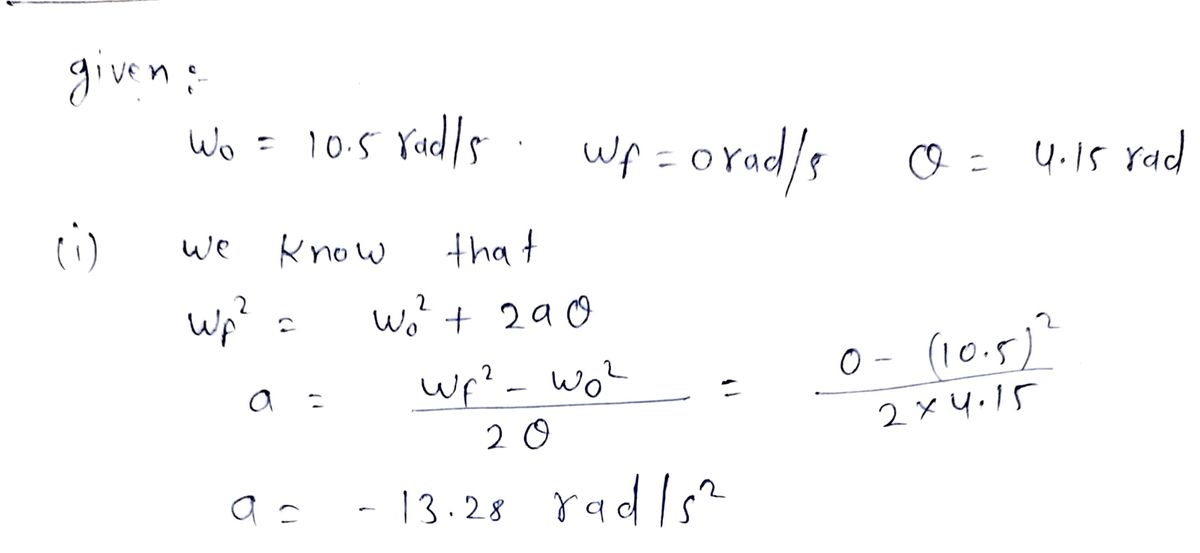 given :-
w₀ = 10.5 rad/s . wf = 0 rad/s θ = 4.15 rad
(i) we know that
wf² = w₀² + 2aθ
a = (wf² - w₀²) / 2θ = (0 - (10.5)²) / 2×4.15
a = - 13.28 rad/s²